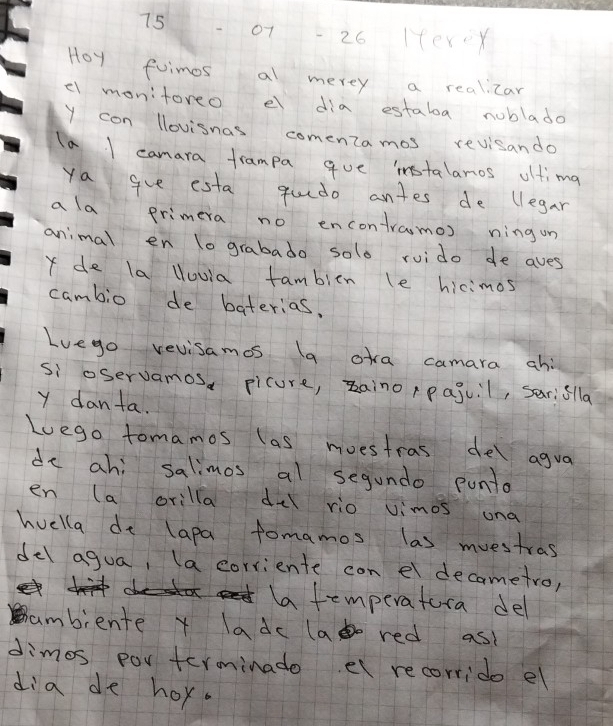 15 - 01 - 26 Merey
Hoy fuimos al merey a realizar
el monitoreo el dia estaba nublado
y con llovisnas comenzamos revisando
la 1 camara trampa que instalamos ultima
ya que esta quedo antes de llegar
a la primera no encontramos ningun
animal en lo grabado solo ruido de aves
y de la lluvia tambien le hicimos
cambio de baterias.
Luego revisamos la otra camara ahi
si oservamos picure, zaino, pajuil,
y danta.
Luego tomamos las muestras del agua
de ahi salimos al segundo punto
en la orilla del rio vimos una
huella de lapa tomamos las muestras
del agua, la corriente con el decametro,
la temperatura del
ambiente y la de la red asi
dimos por terminado el recorrido el
dia de hoy.